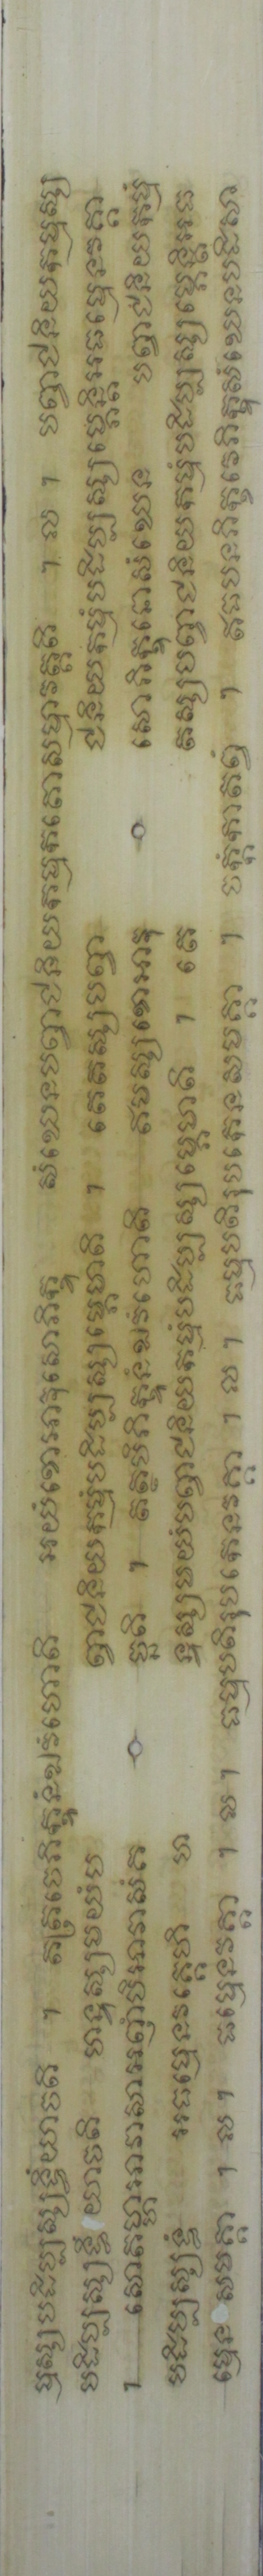 ម្មស្សបដិប្បស្សទ្ធិំយាចតិ ។ តត្រចេភិក្ខូនំឯវំហោតិ អយំខោអាវុសោភិក្ខុ សំឃេនបព្វាជនិយកម្មកតោសម្មាវត្តតិ ។ ល ។ បព្វាជនិយកម្មស្ស
បដិប្បស្សទ្ធិំ យាចតិ ហន្ទស្សមយំប ព្វាជនិយកម្មំបដិប្បស្សម្ភេមាតិ ។ តេតស្សបព្វា ជនិយកម្មំបដិប្បស្សម្ភេន្តិអធម្មេនវគ្គា
។ សោតម្ហាអាវាសាអញ្ញំបិអាវាសំគ ច្ឆតិ ។ តត្ថបិភិក្ខូនំឯវំហោតិ ឥមស្សខោអាវុ សោភិក្ខុនោសំឃេន បព្វាជនិយកម្មំ
បដិប្បស្សទ្ធំ អធម្មេនវគ្គេហិ ហ ន្ទស្សមយំបព្វាជនិយកម្មំបដិប្បស្សម្ភេមាតិ ។ តេ តស្សបព្វាជនិយកម្មំបដិប្បស្សម្ភេន្តិអធ
ម្មេន សមគ្គា ។ ល ។ ធម្មេនវគ្គា ។ ល ។ ធម្មបតិរុបកេនវគ្គា ។ ល ។ ធម្មបតិរុបកេនសមគ្គា ។ ចក្កំកាតព្វំ ។ ឥធបនភិក្ខវេភិក្ខុសំឃេនបដិសា